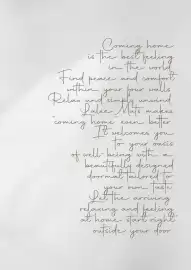 Coming home
is the best feeling
in the world
Find peace and comfort
within your four walls
Relax and simply unwind
Mats makes
coming home even better
It welcomes you
to your oasis
of well-being with a
beautifully designed
doormat tailored to
your own taste
Let the arriving
relaxing and feeling
at home start right
outside your door